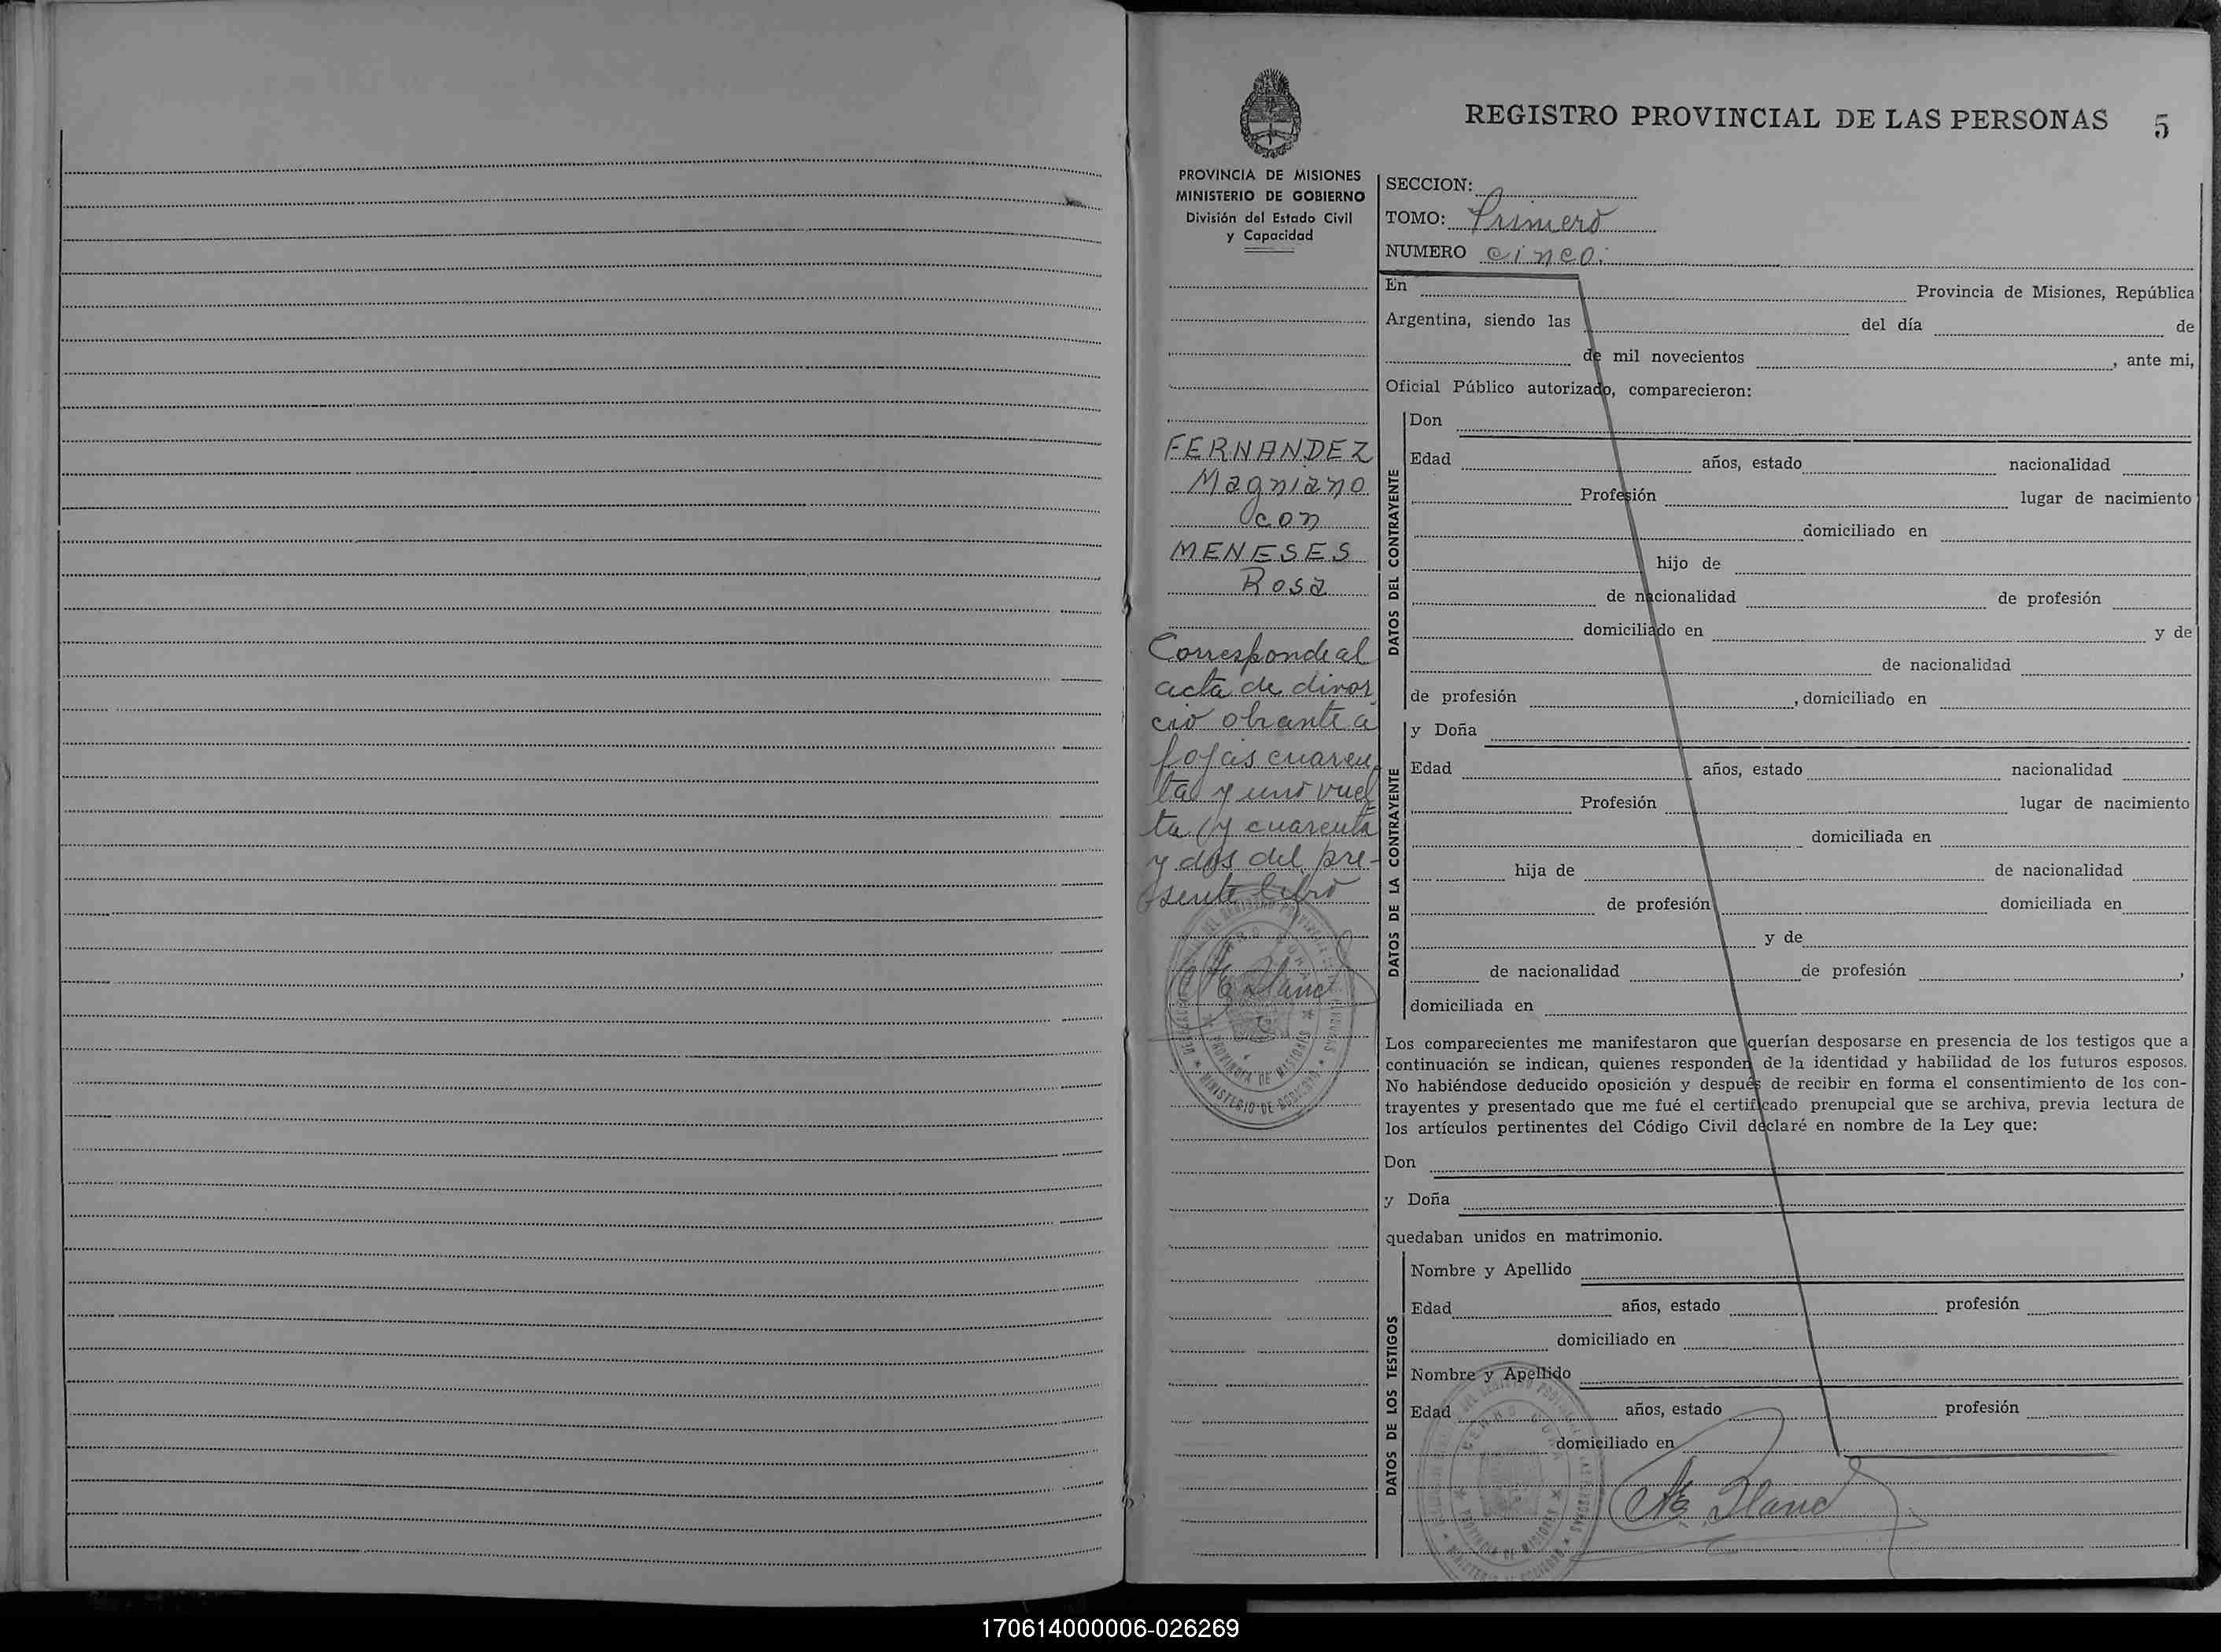 REGISTRO PROVINCIAL DE LAS PERSONAS 5
PROVINCIA DE MISIONES
MINISTERIO DE GOBIERNO
División del Estado Civil
y Capacidad
FERNANDEZ
Magniano
con
MENESES
Rosa
Corresponde al
acta de divor
cio obrante a
fojas cuaren
ta y uno vuel
ta y cuarenta
y dos del pre-
sente libro
SECCION:
TOMO: Primero
NUMERO cinco.
En Provincia de Misiones, República
Argentina, siendo las del día de
de mil novecientos , ante mi,
Oficial Público autorizado, comparecieron:
DATOS DEL CONTRAYENTE
Don
Edad años, estado nacionalidad
Profesión lugar de nacimiento
domiciliado en
hijo de
de nacionalidad de profesión
domiciliado en y de
de nacionalidad
de profesión , domiciliado en
DATOS DE LA CONTRAYENTE
y Doña
Edad años, estado nacionalidad
Profesión lugar de nacimiento
domiciliada en
hija de de nacionalidad
de profesión domiciliada en
y de
de nacionalidad de profesión ,
domiciliada en
Los comparecientes me manifestaron que querían desposarse en presencia de los testigos que a
continuación se indican, quienes responden de la identidad y habilidad de los futuros esposos.
No habiéndose deducido oposición y después de recibir en forma el consentimiento de los con-
trayentes y presentado que me fué el certificado prenupcial que se archiva, previa lectura de
los artículos pertinentes del Código Civil declaré en nombre de la Ley que:
Don
y Doña
quedaban unidos en matrimonio.
DATOS DE LOS TESTIGOS
Nombre y Apellido
Edad años, estado profesión
domiciliado en
Nombre y Apellido
Edad años, estado profesión
domiciliado en
CERRO CORA
PROVINCIA DE MISIONES
MINISTERIO DE GOBIERNO
170614000006-026269